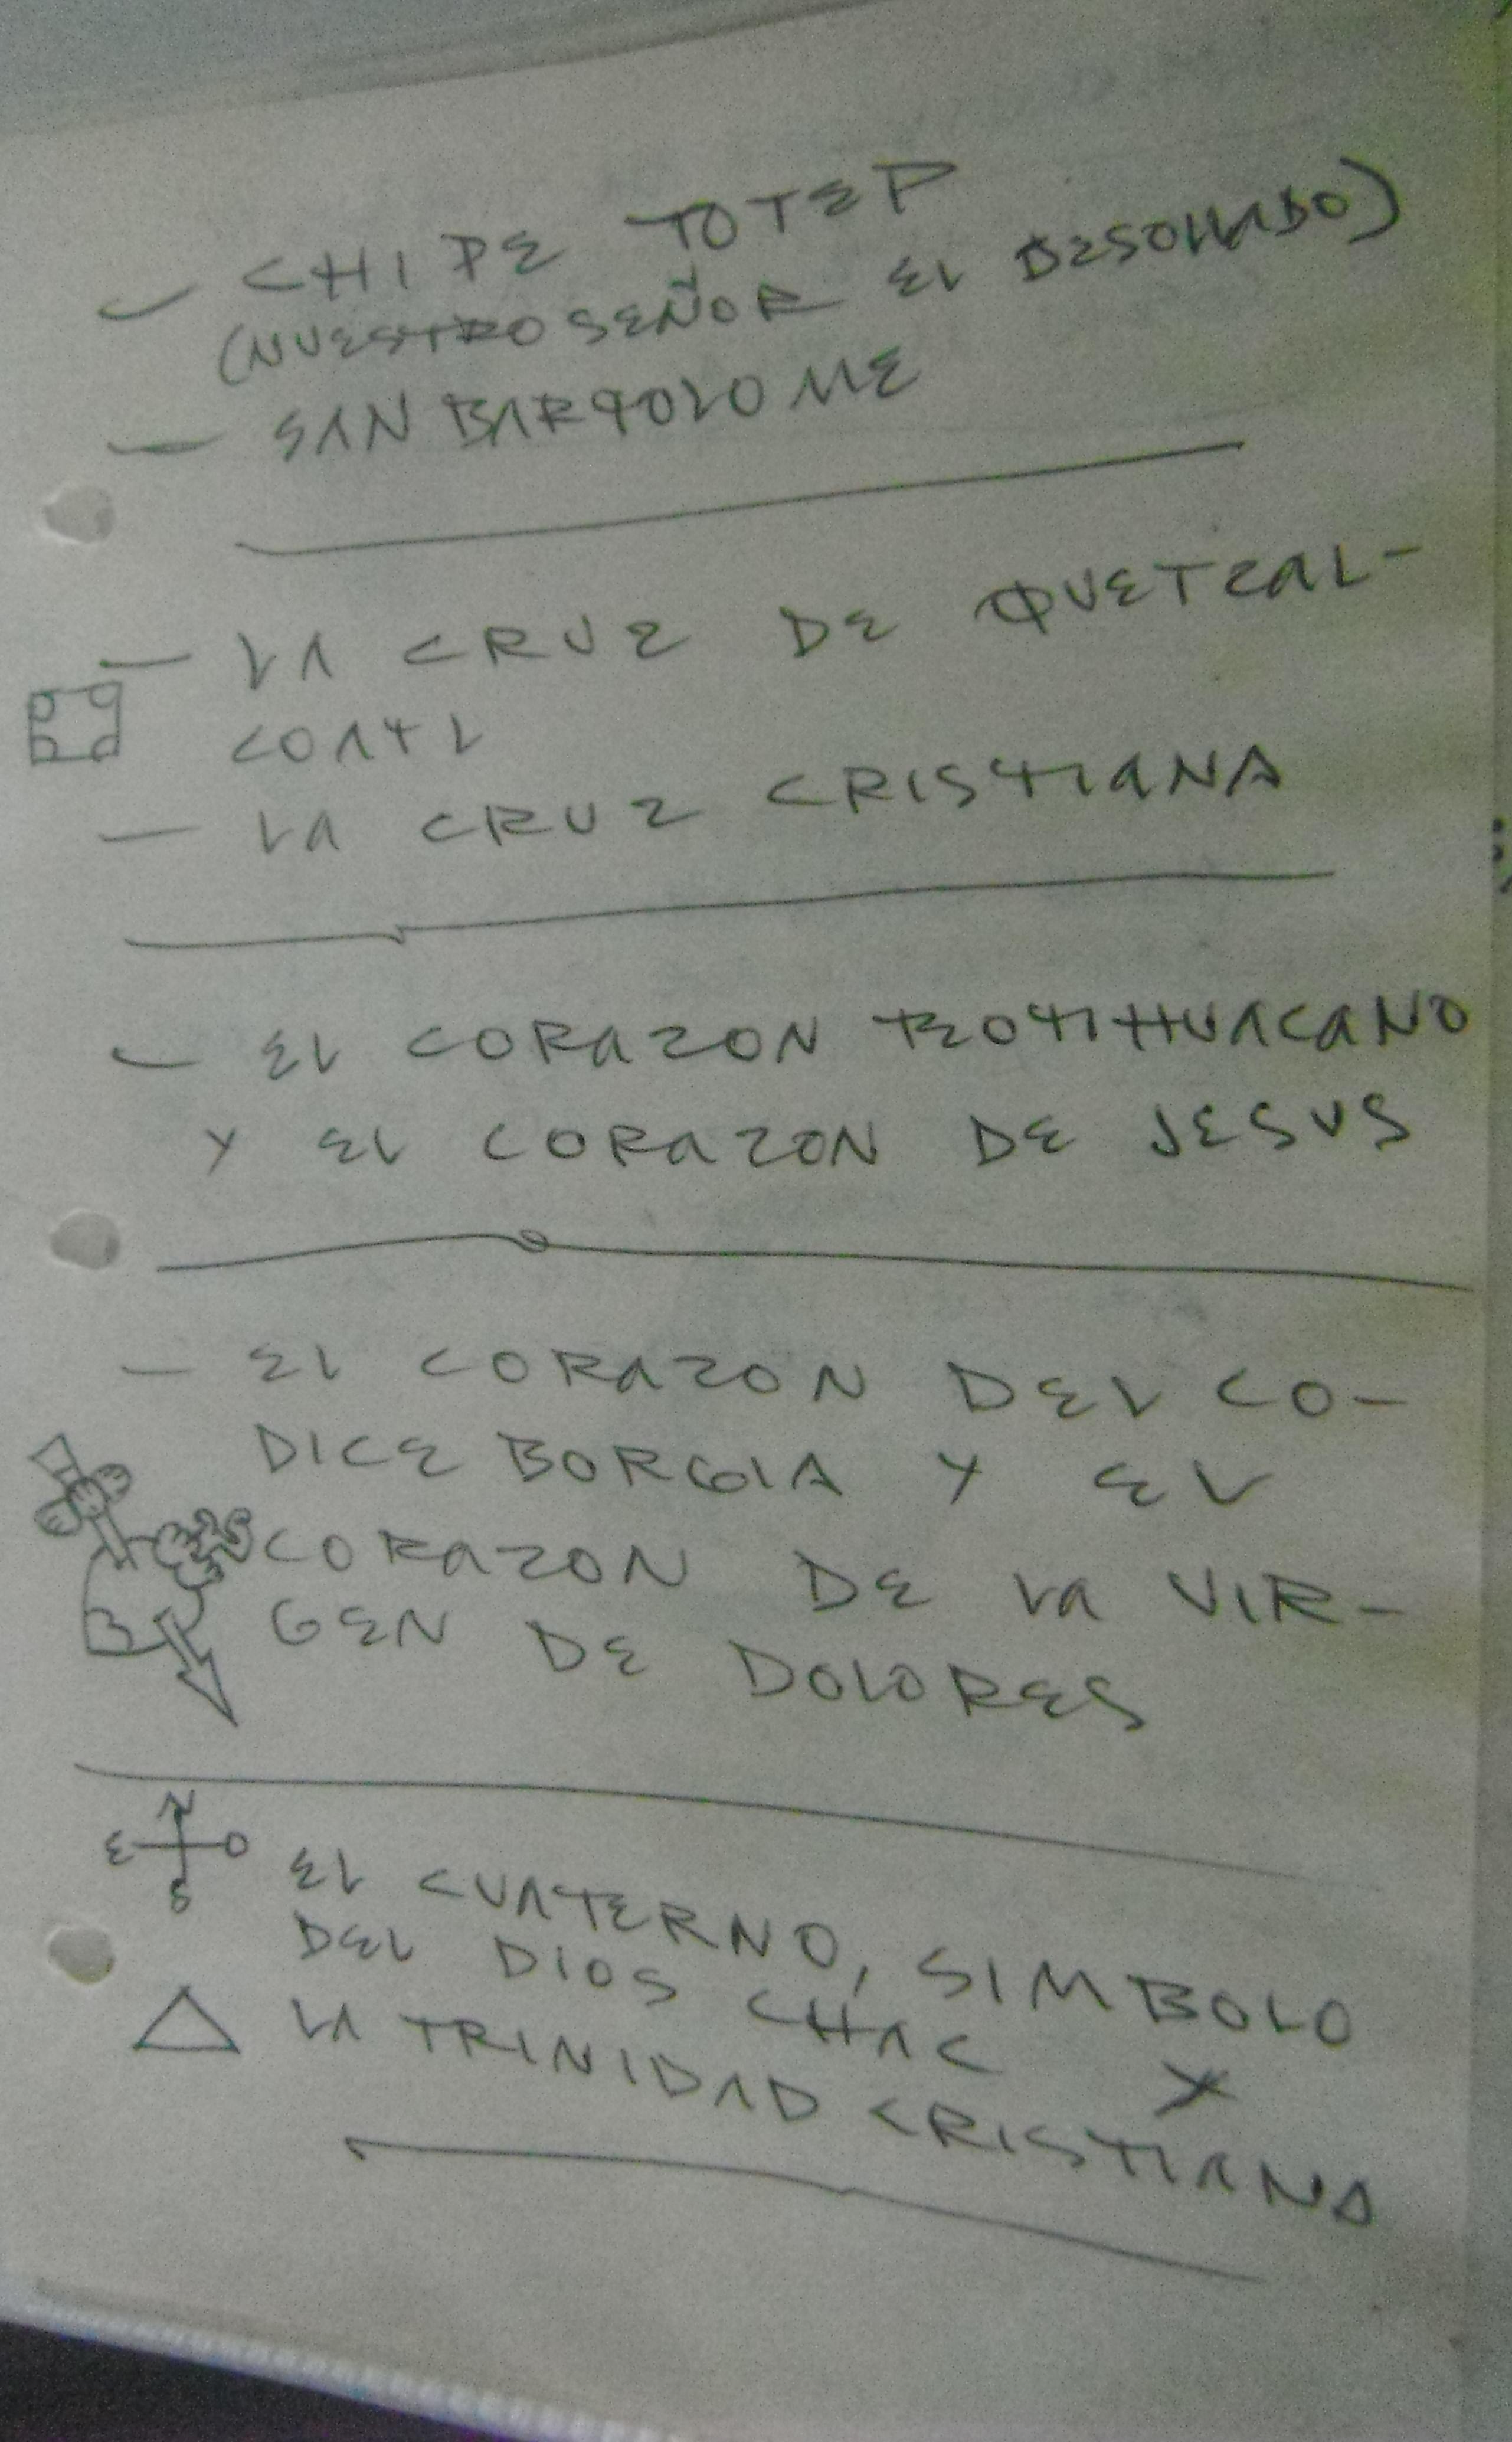 - CHIPE TOTEP
(NUESTRO SEÑOR EL DESOLLADO)
- SAN BARTOLOME
- LA CRUZ DE QUETZAL-
COATL
- LA CRUZ CRISTIANA
- EL CORAZON TEOTIHUACANO
Y EL CORAZON DE JESUS
- EL CORAZON DEL CO-
DICE BORGIA Y EL
CORAZON DE LA VIR-
GEN DE DOLORES
N
E O
S
EL CUATERNO, SIMBOLO
DEL DIOS CHAC Y
LA TRINIDAD CRISTIANA